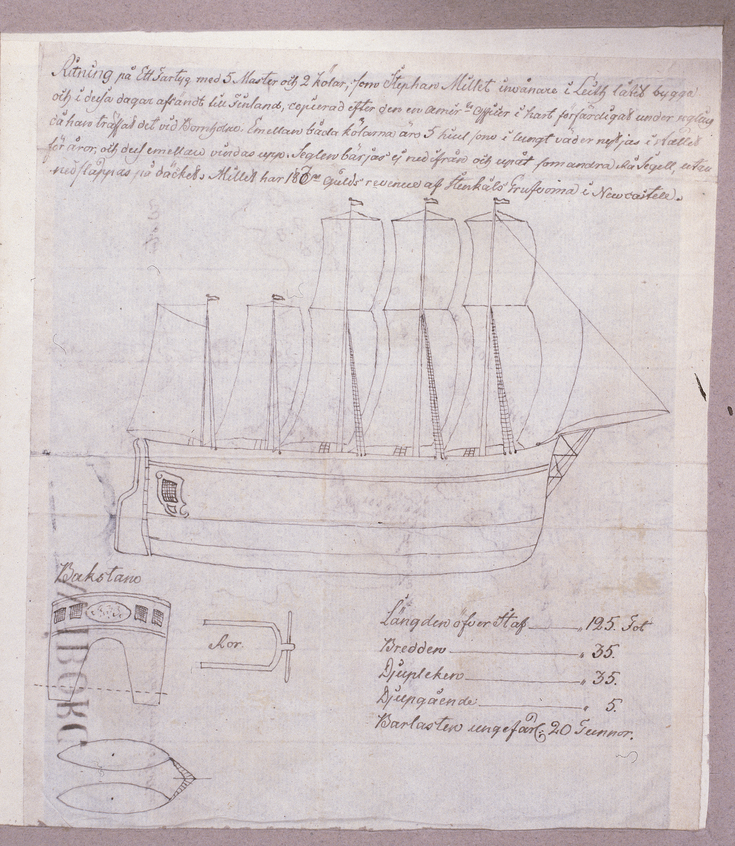 Ritning på Ett Fartyg med 5 Master och 2 kölar, som Stephan Millet inwånare i Leith låtit bygga
och i dessa dagar afsändt till Finland, copierad efter den en Officer i hast förfärdigat under
då han träffat det vid Emellan båda kölarna äro 5 hiul som i lungt väder nyttjas i stället
för åror, och dess emellan vindas upp. Seglen bärjas ej nedifrån och upåt som andra Segell, utan
nedslappas på däcket. Millet har Gulds revenue af Stenkåls i Newcastell.
Bakstam
WIBORG
Ror.
Längden öfver Staf 125. Fot
Bredden " 35.
Djupleken " 35.
Djupgående " 5.
Barlasten ungefärl: 20 Tunnor.